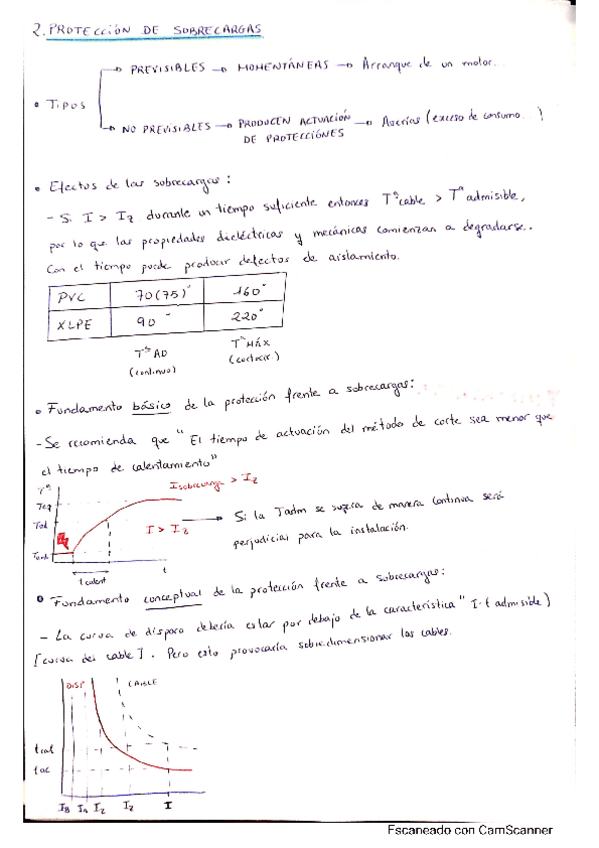 2. PROTECCIÓN DE SOBRECARGAS
PREVISIBLES → MOMENTÁNEAS → Arranque de un motor...
• TIPOS
NO PREVISIBLES → PRODUCEN ACTUACIÓN DE PROTECCIÓNES → Averías (exceso de consumo...)
• Efectos de las sobrecargas:
- Si I > Iz durante un tiempo suficiente entonces Tª cable > Tª admisible,
por lo que las propiedades dieléctricas y mecánicas comienzan a degradarse..
Con el tiempo puede producir defectos de aislamiento.
PVC 70(75)° 160°
XLPE 90° 220°
Tª AD (continuo)
Tª MÁX (cortocir.)
• Fundamento básico de la protección frente a sobrecargas:
- Se recomienda que "El tiempo de actuación del método de corte sea menor que
el tiempo de calentamiento"
Tª
Isobrecarga > Iz
Teq
Tad
I > Iz → Si la Tadm se supera de manera continua será
perjudicial para la instalación.
Tamb
t
t calent
• Fundamento conceptual de la protección frente a sobrecargas:
- La curva de disparo debería estar por debajo de la característica "I·t admisible)
[curva del cable]. Pero esto provocaría sobredimensionar los cables.
DISP CABLE
t cal
t ac
IB In Iz I2 I
Escaneado con CamScanner